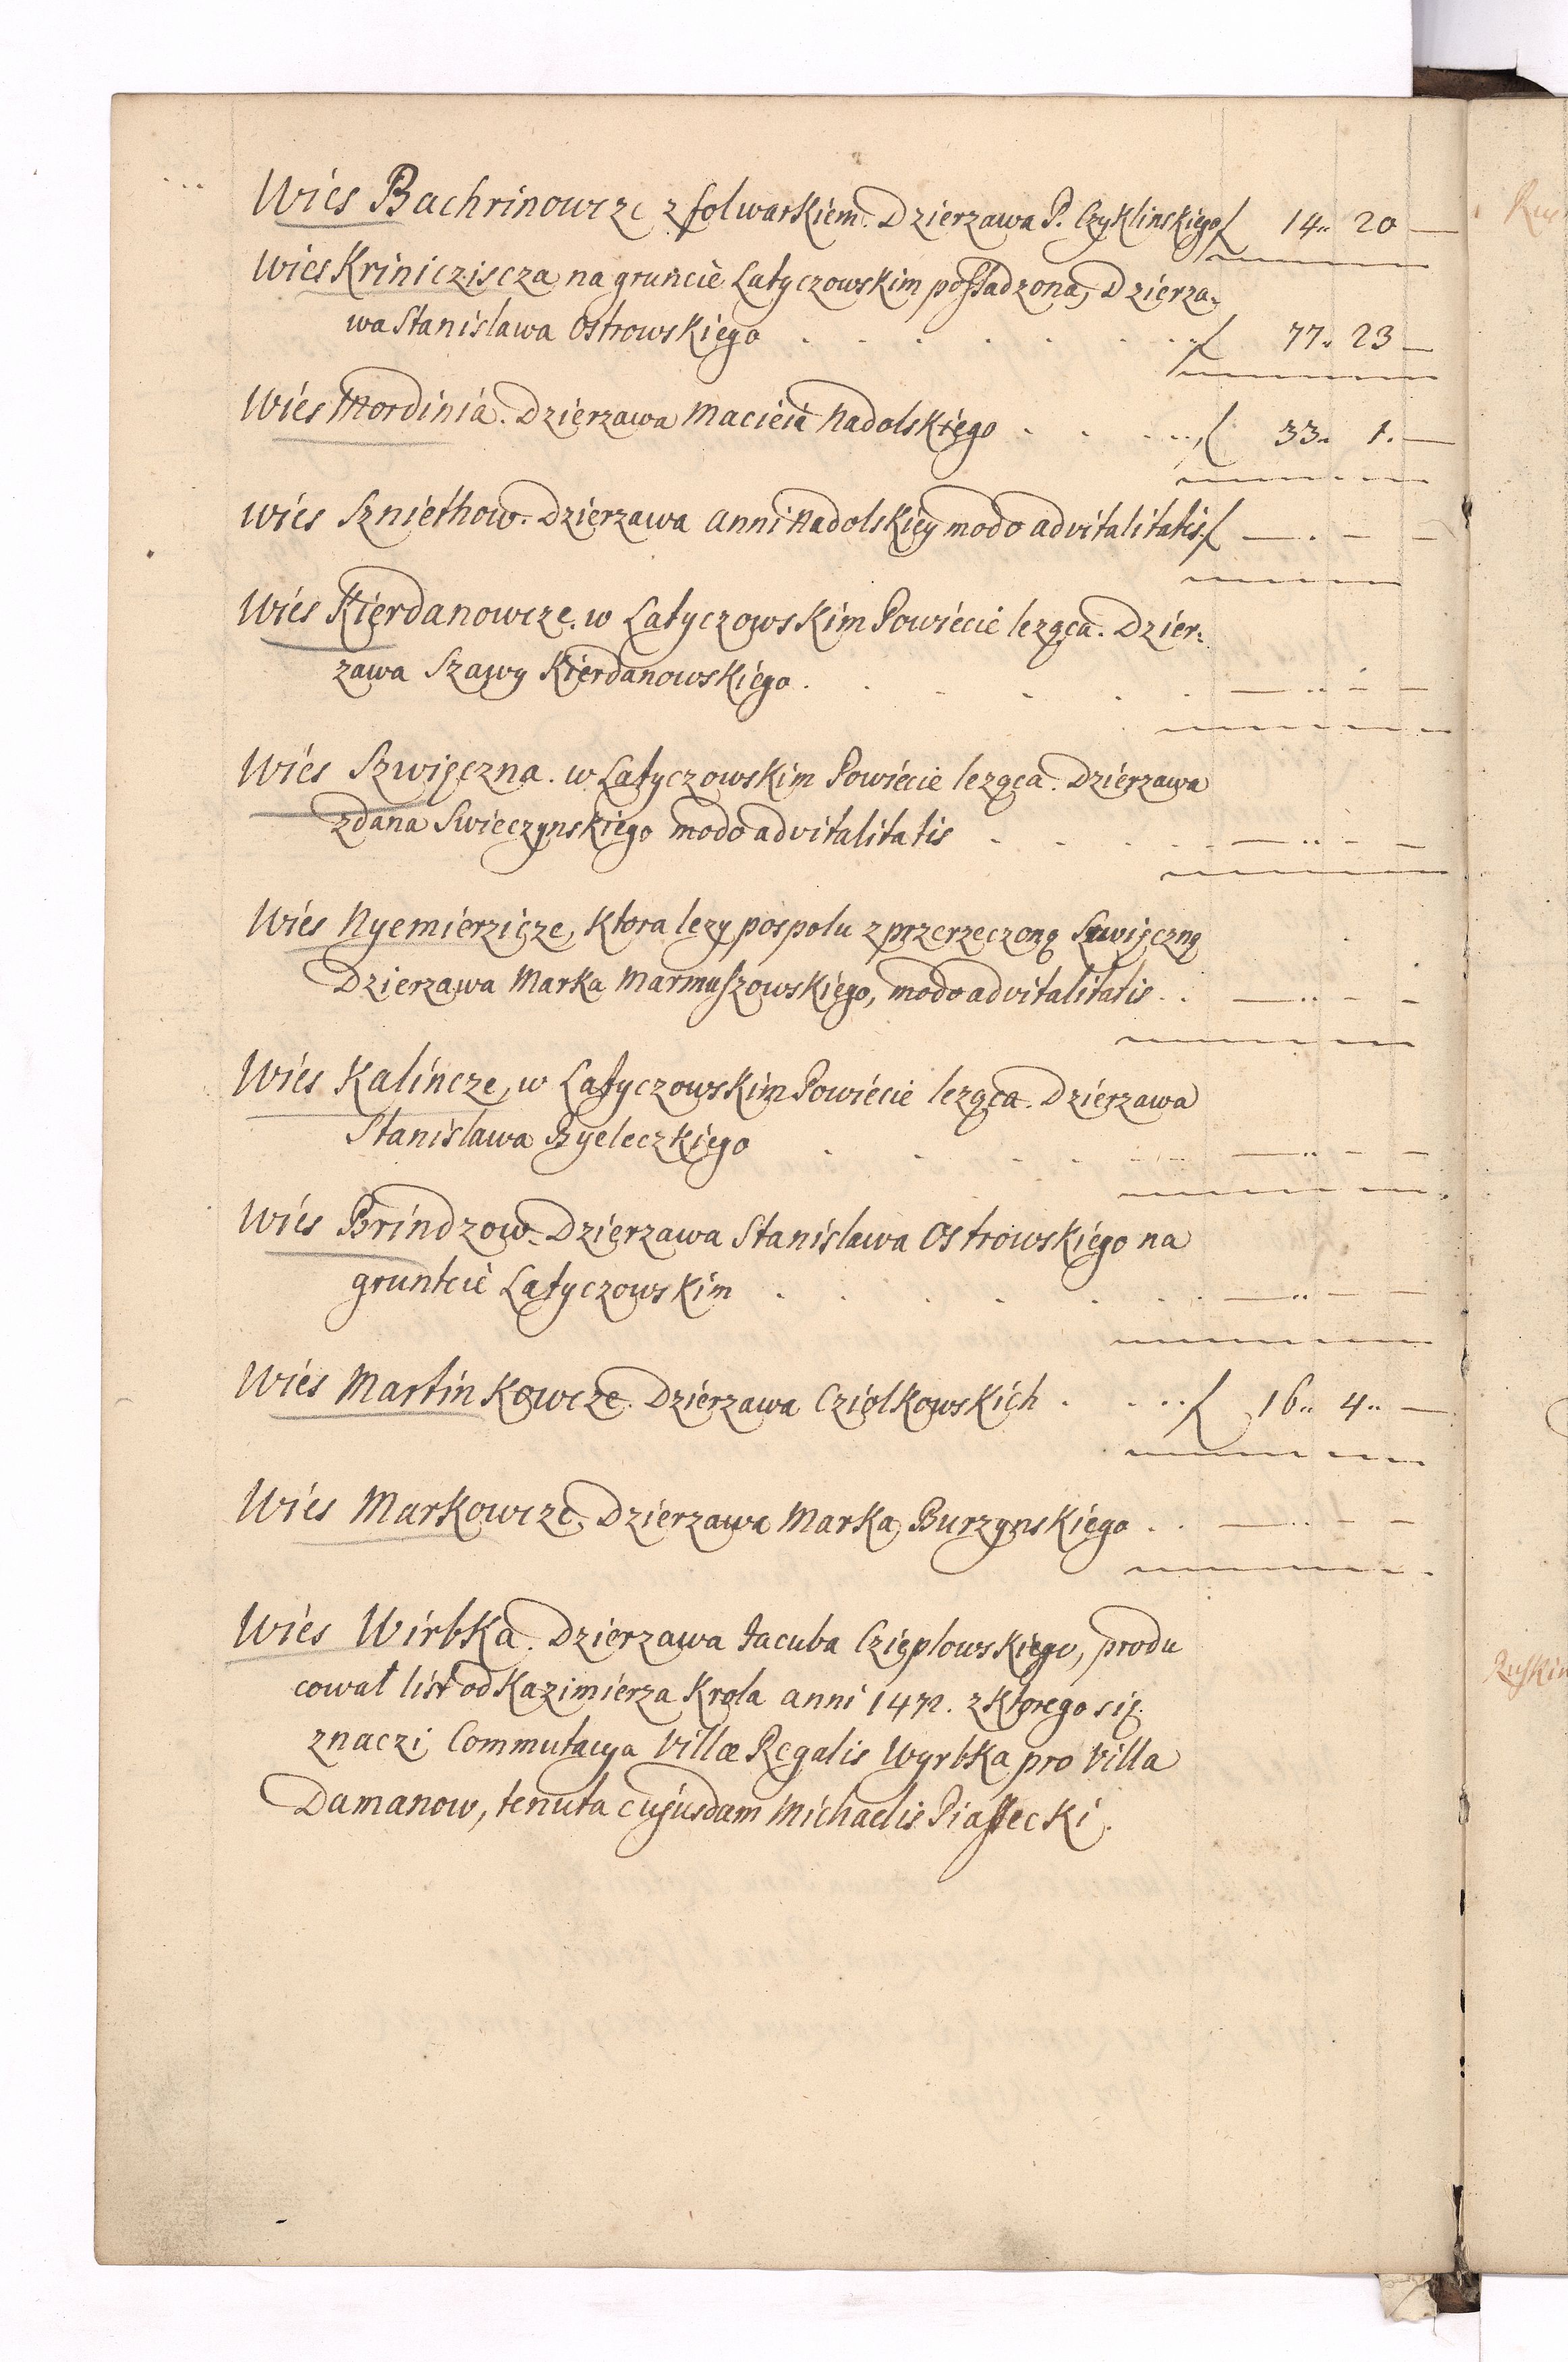 Wies Bachrinowcze z folwarkiem. Dzierzawa P. Czyklinskiego f 14.. 20 —
Wies Krinicziscza na gruncie Latyczowskim possadzona, Dzierza-
wa Stanislawa Ostrowskiego . . . . . . . . . f 77.. 23 —
Wies Mordinia. Dzierzawa Macieia Nadolskiego . . . . . f 33.. 1. —
Wies Szniethow. Dzierzawa Anni Nadolskiey modo advitalitatis f — . — —
Wies Kierdanowcze. w Latyczowskim Powiecie leząca. Dzier-
zawa Szawy Kierdanowskiego . . . . . . — .. — —
Wies Szwięczna. w Latyczowskim Powiecie leząca. Dzierzawa
zdana Swieczynskiego modo advitalitatis . . . . . — .. — —
Wies Nyemierzicze, ktora lezy pospolu z przerzeczoną Szwięczną
Dzierzawa Marka Marmuszowskiego, modo advitalitatis . . — .. — —
Wies Kalincze, w Latyczowskim Powiecie leząca. Dzierzawa
Stanislawa Byeleczkiego . . . . . . . — .. — —
Wies Brindzow. Dzierzawa Stanislawa Ostrowskiego na
gruntcie Latyczowskim . . . . . . . — .. — —
Wies Martinkowcze. Dzierzawa Cziolkowskich . . . . f 16.. 4.. —
Wies Markowcze, Dzierzawa Marka Burzynskiego . . — .. — —
Wies Wirbka. Dzierzawa Jacuba Czieplowskiego, produ
cowal list od Kazimierza Krola anni 1472. z ktorego się
znaczi Commutacya Villæ Regalis Wyrbka pro Villa
Damanow, tenuta cujusdam Michaelis Piassecki.